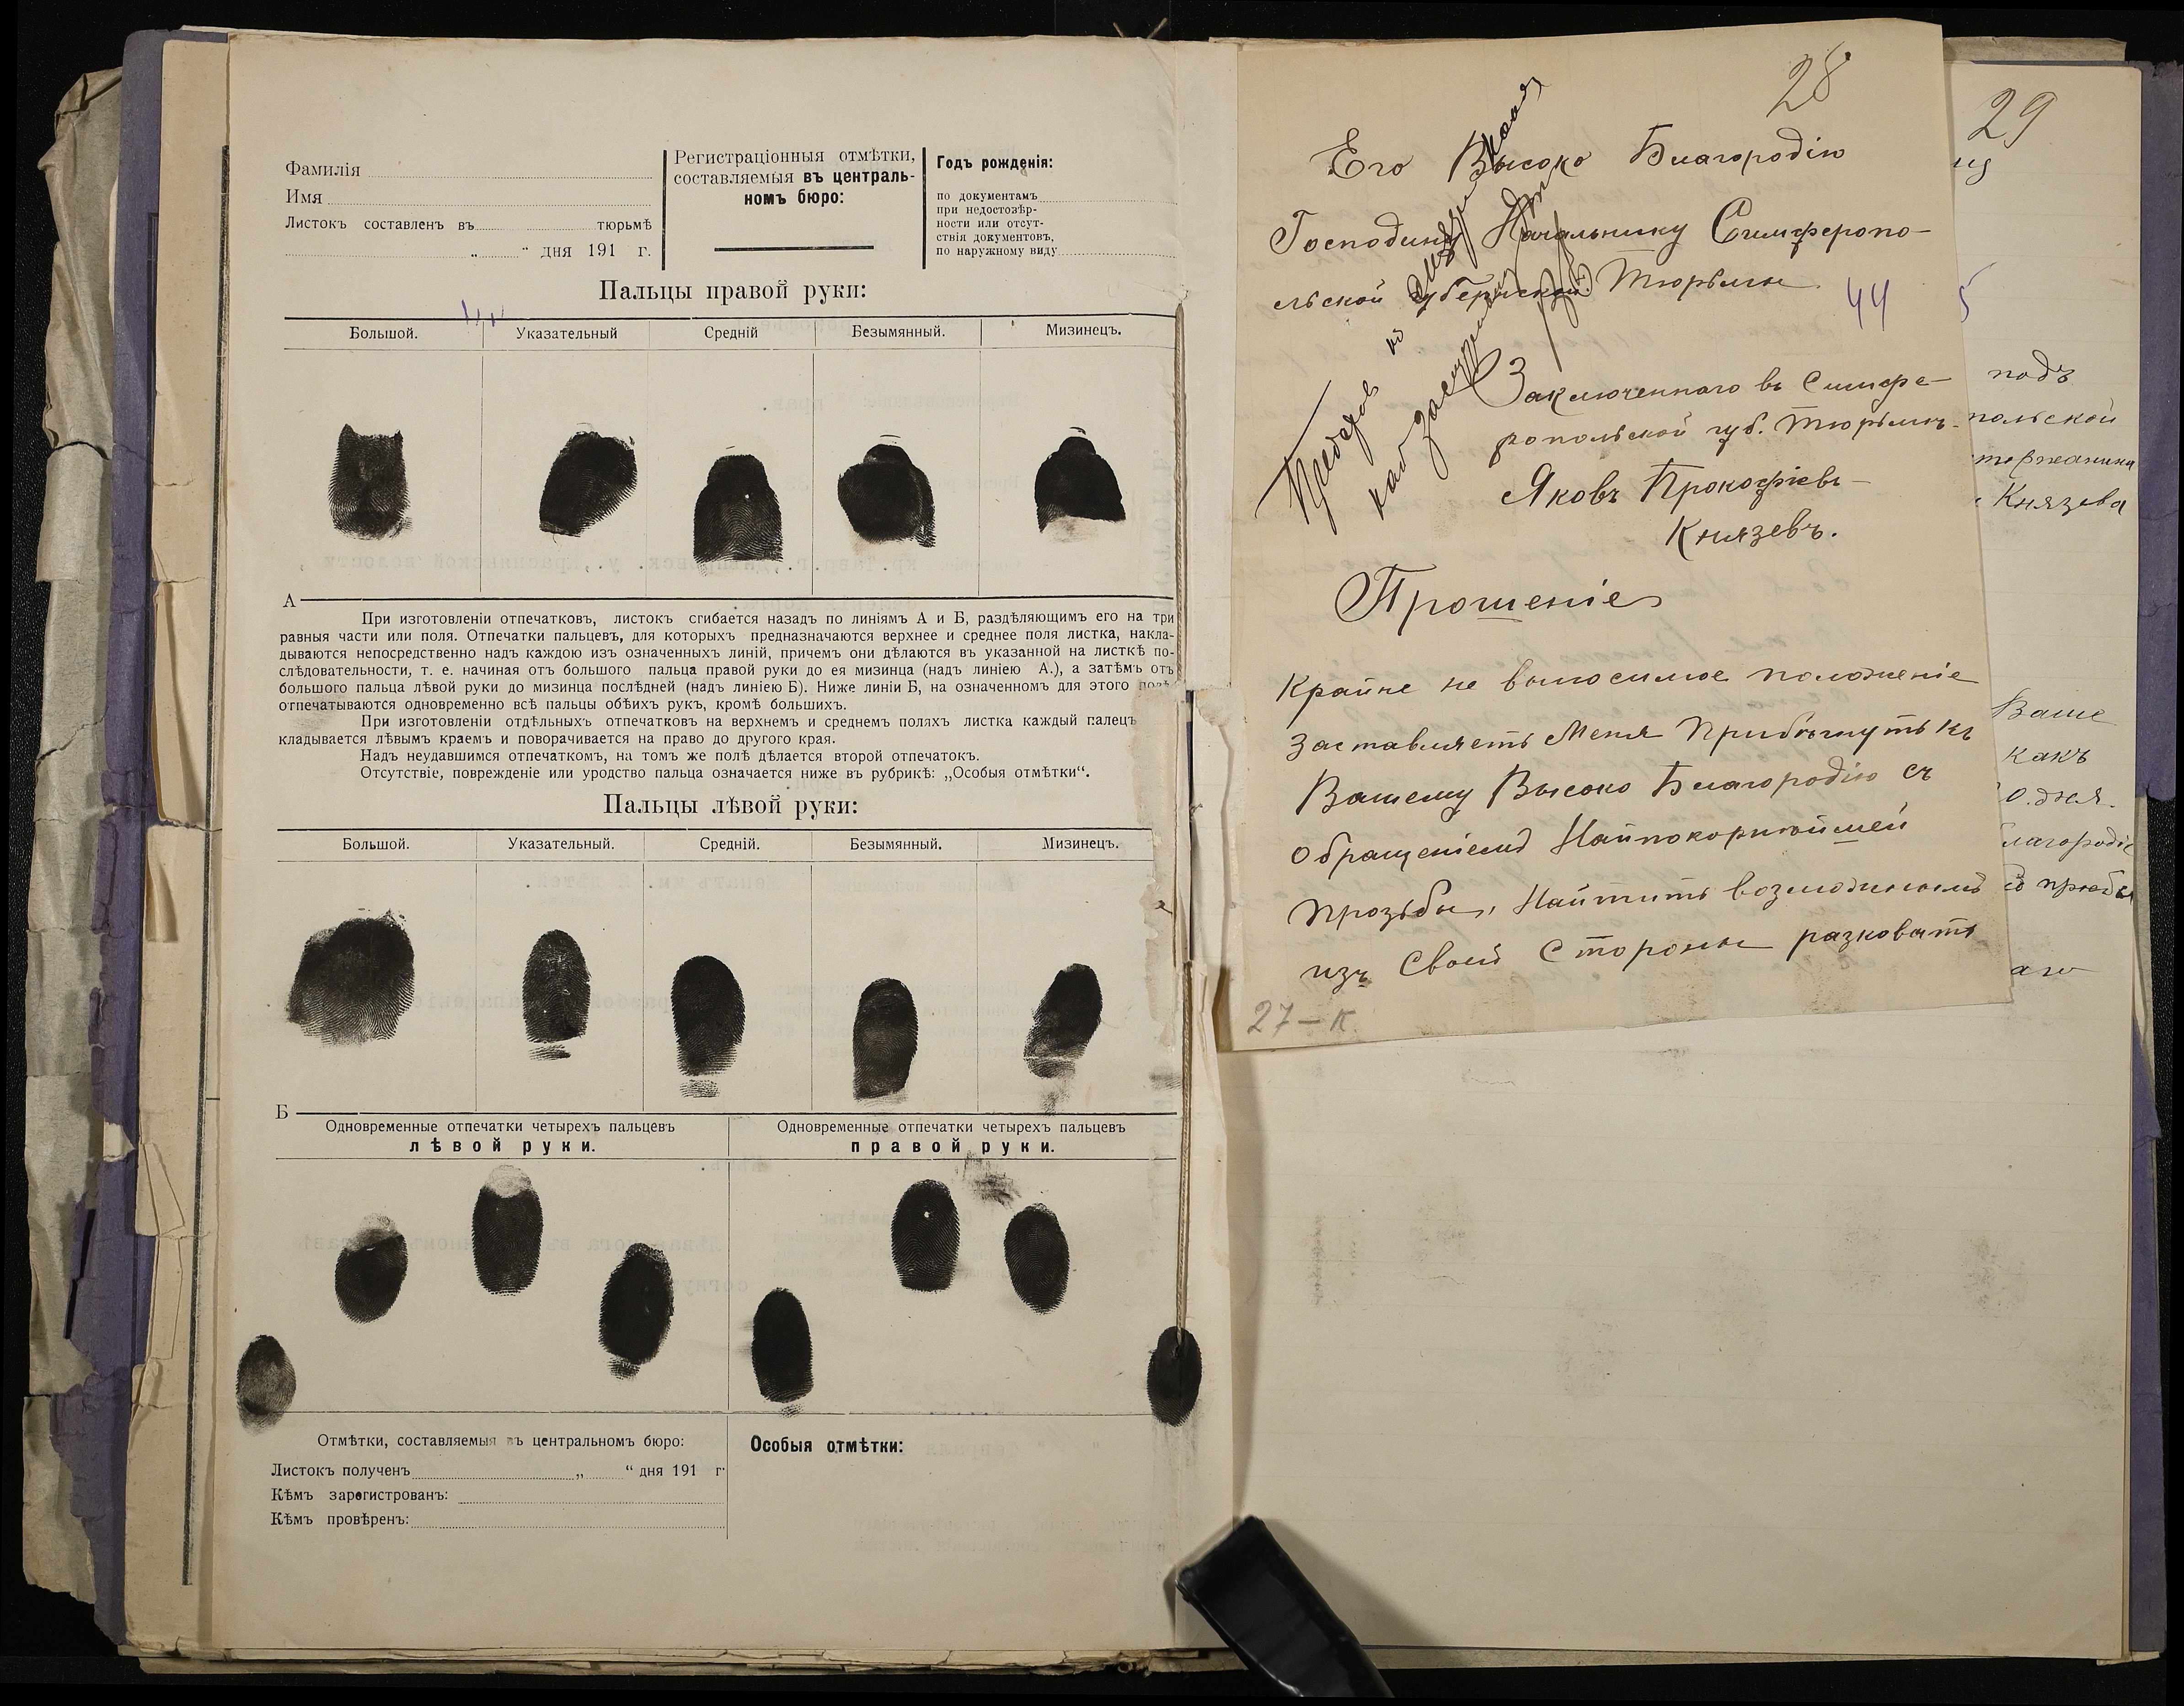 Фамилія
Имя
Листокъ составленъ въ тюрьмѣ
„ “ дня 191 г.
Регистраціонныя отмѣтки,
составляемыя въ централь-
номъ бюро:
Годъ рожденія:
по документамъ
при недостовѣр-
ности или отсут-
ствія документовъ,
по наружному виду
Пальцы правой руки:
Большой. Указательный Средній Безымянный. Мизинецъ.
А
При изготовленіи отпечатковъ, листокъ сгибается назадъ по линіямъ А и Б, раздѣляющимъ его на три
равныя части или поля. Отпечатки пальцевъ, для которыхъ предназначаются верхнее и среднее поля листка, накла-
дываются непосредственно надъ каждою изъ означенныхъ линій, причемъ они дѣлаются въ указанной на листкѣ по-
слѣдовательности, т. е. начиная отъ большого пальца правой руки до ея мизинца (надъ линіею А.), а затѣмъ отъ
большого пальца лѣвой руки до мизинца послѣдней (надъ линіею Б). Ниже линіи Б, на означенномъ для этого полѣ
отпечатываются одновременно всѣ пальцы обѣихъ рукъ, кромѣ большихъ.
При изготовленіи отдѣльныхъ отпечатковъ на верхнемъ и среднемъ поляхъ листка каждый палецъ
кладывается лѣвымъ краемъ и поворачивается на право до другого края.
Надъ неудавшимся отпечаткомъ, на томъ же полѣ дѣлается второй отпечатокъ.
Отсутствіе, поврежденіе или уродство пальца означается ниже въ рубрикѣ: „Особыя отмѣтки“.
Пальцы лѣвой руки:
Большой. Указательный. Средній. Безымянный. Мизинецъ.
Б
Одновременные отпечатки четырехъ пальцевъ
лѣвой руки.
Одновременные отпечатки четырехъ пальцевъ
правой руки.
Отмѣтки, составляемыя въ центральномъ бюро:
Листокъ полученъ „ “ дня 191 г.
Кѣмъ зарегистрованъ:
Кѣмъ провѣренъ:
Особыя отмѣтки:
28
Его Высоко Благородію
Господину Начальнику Симферопо-
льской Губернской Тюрьмы
44
Заключеннаго въ Симфе-
ропольской губ. Тюрьмѣ
Яковъ Прокофіевъ
Князевъ.
Прошеніе
Крайне не выносимое положеніе
заставляетъ Меня Прибѣгнуть къ
Вашему Высоко Благородію съ
Обращеніемъ Найпокорнѣйшей
прозьбы, Найтить возможнымъ
изъ Своей Стороны разковать
27-К
29
5
подъ
польской
Князева
Ваше
какъ
лагородіе
аго